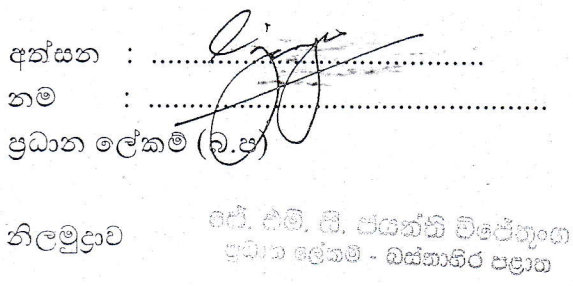 අත්සන : ................................................
නම : ................................................
ප්‍රධාන ලේකම් (බ.ප)
නිලමුද්‍රාව
ජේ. එම්. සී. ජයන්ති විජේතුංග
ප්‍රධාන ලේකම් - බස්නාහිර පළාත